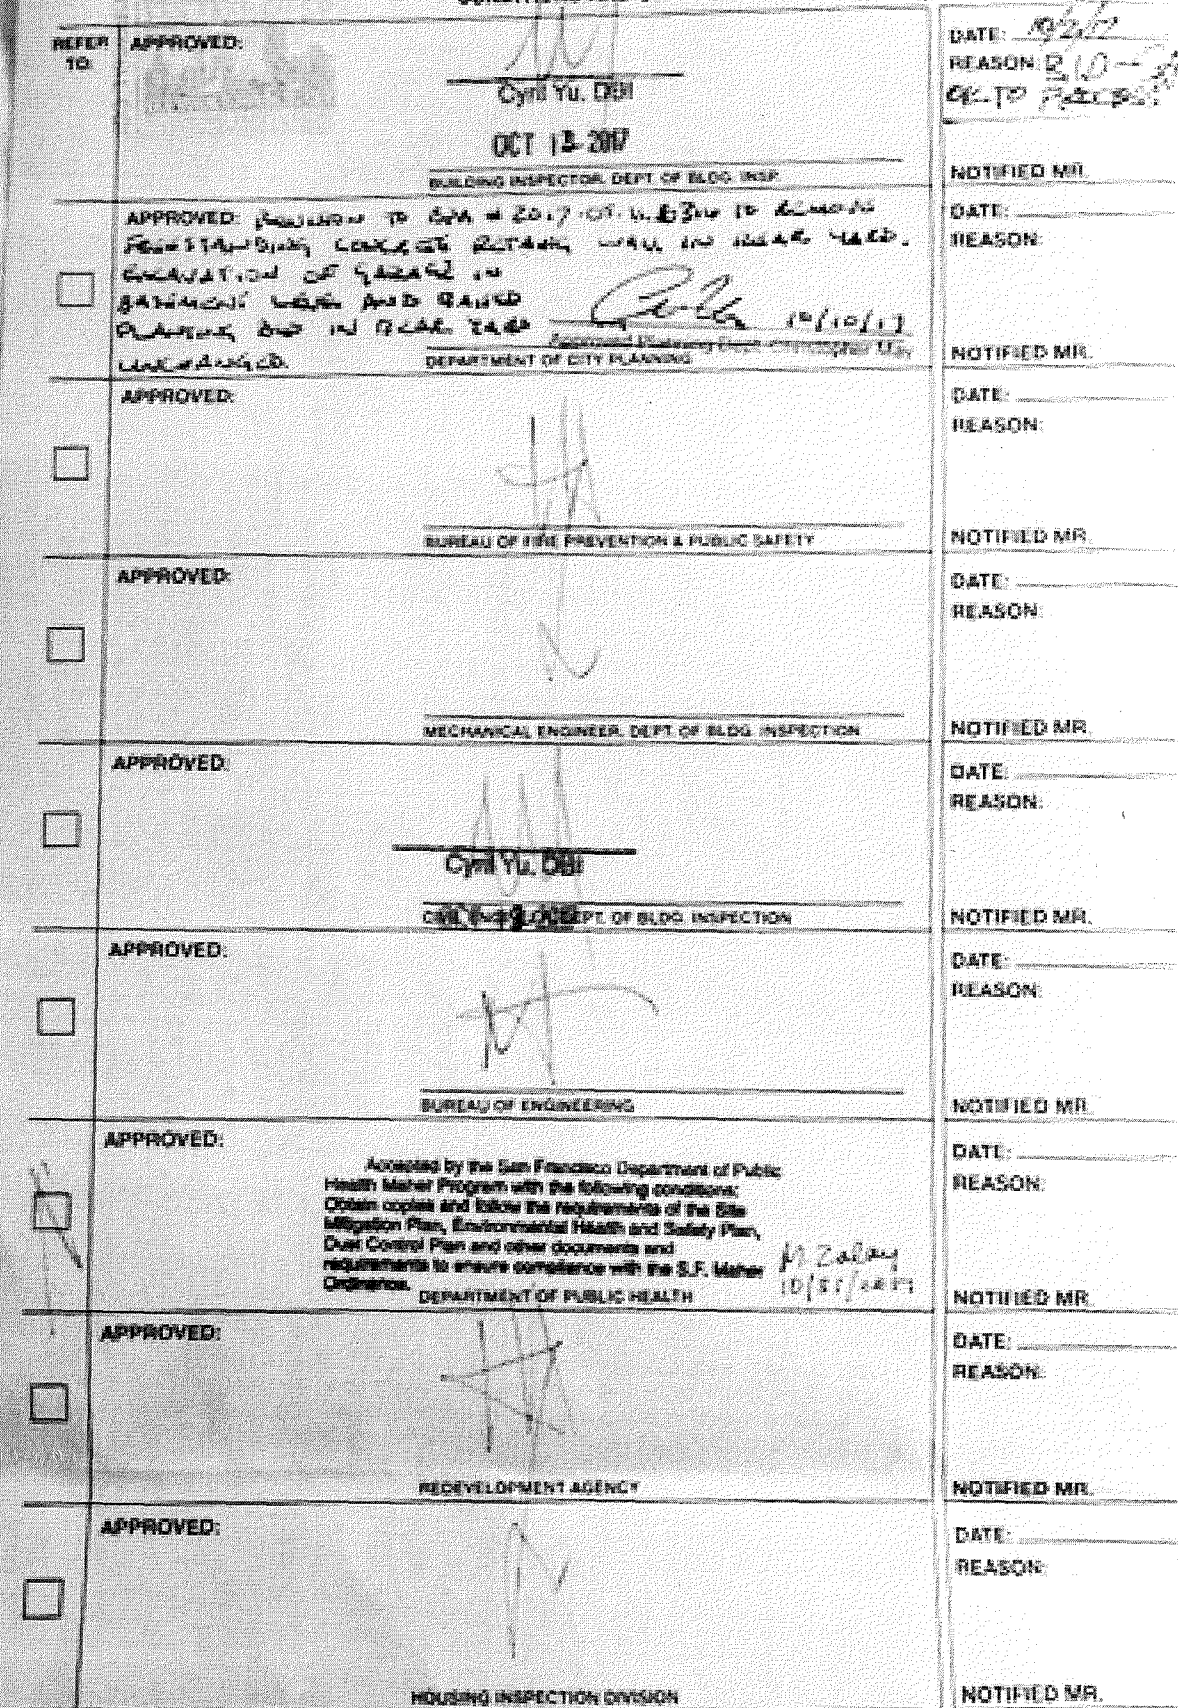 REFER
TO:
APPROVED:
Cyril Yu, DBI
OCT 13 2017
BUILDING INSPECTOR, DEPT. OF BLDG. INSP.
DATE:
REASON:
OK TO PROCESS
NOTIFIED MR.
APPROVED: REVISION TO BPA # TO REMOVE
FREESTANDING CONCRETE RETAING WALL IN REAR YARD.
EXCAVATION OF GARAGE IN
BASEMENT LEVEL AND RAISED
PLANTING BED IN REAR YARD
UNCHANGED.
10/10/17
Approved Planning Dept. Christopher May
DEPARTMENT OF CITY PLANNING
DATE:
REASON:
NOTIFIED MR.
APPROVED:
BUREAU OF FIRE PREVENTION & PUBLIC SAFETY
DATE:
REASON:
NOTIFIED MR.
APPROVED:
MECHANICAL ENGINEER, DEPT. OF BLDG. INSPECTION
DATE:
REASON:
NOTIFIED MR.
APPROVED:
Cyril Yu, DBI
CIVIL ENGINEER, DEPT. OF BLDG. INSPECTION
DATE:
REASON:
NOTIFIED MR.
APPROVED:
BUREAU OF ENGINEERING
DATE:
REASON:
NOTIFIED MR.
APPROVED:
Accepted by the San Francisco Department of Public
Health Maher Program with the following conditions:
Obtain copies and follow the requirements of the Site
Mitigation Plan, Environmental Health and Safety Plan,
Dust Control Plan and other documents and
requirements to ensure compliance with the S.F. Maher
Ordinance.
DEPARTMENT OF PUBLIC HEALTH
DATE:
REASON:
NOTIFIED MR.
APPROVED:
REDEVELOPMENT AGENCY
DATE:
REASON:
NOTIFIED MR.
APPROVED:
HOUSING INSPECTION DIVISION
DATE:
REASON:
NOTIFIED MR.